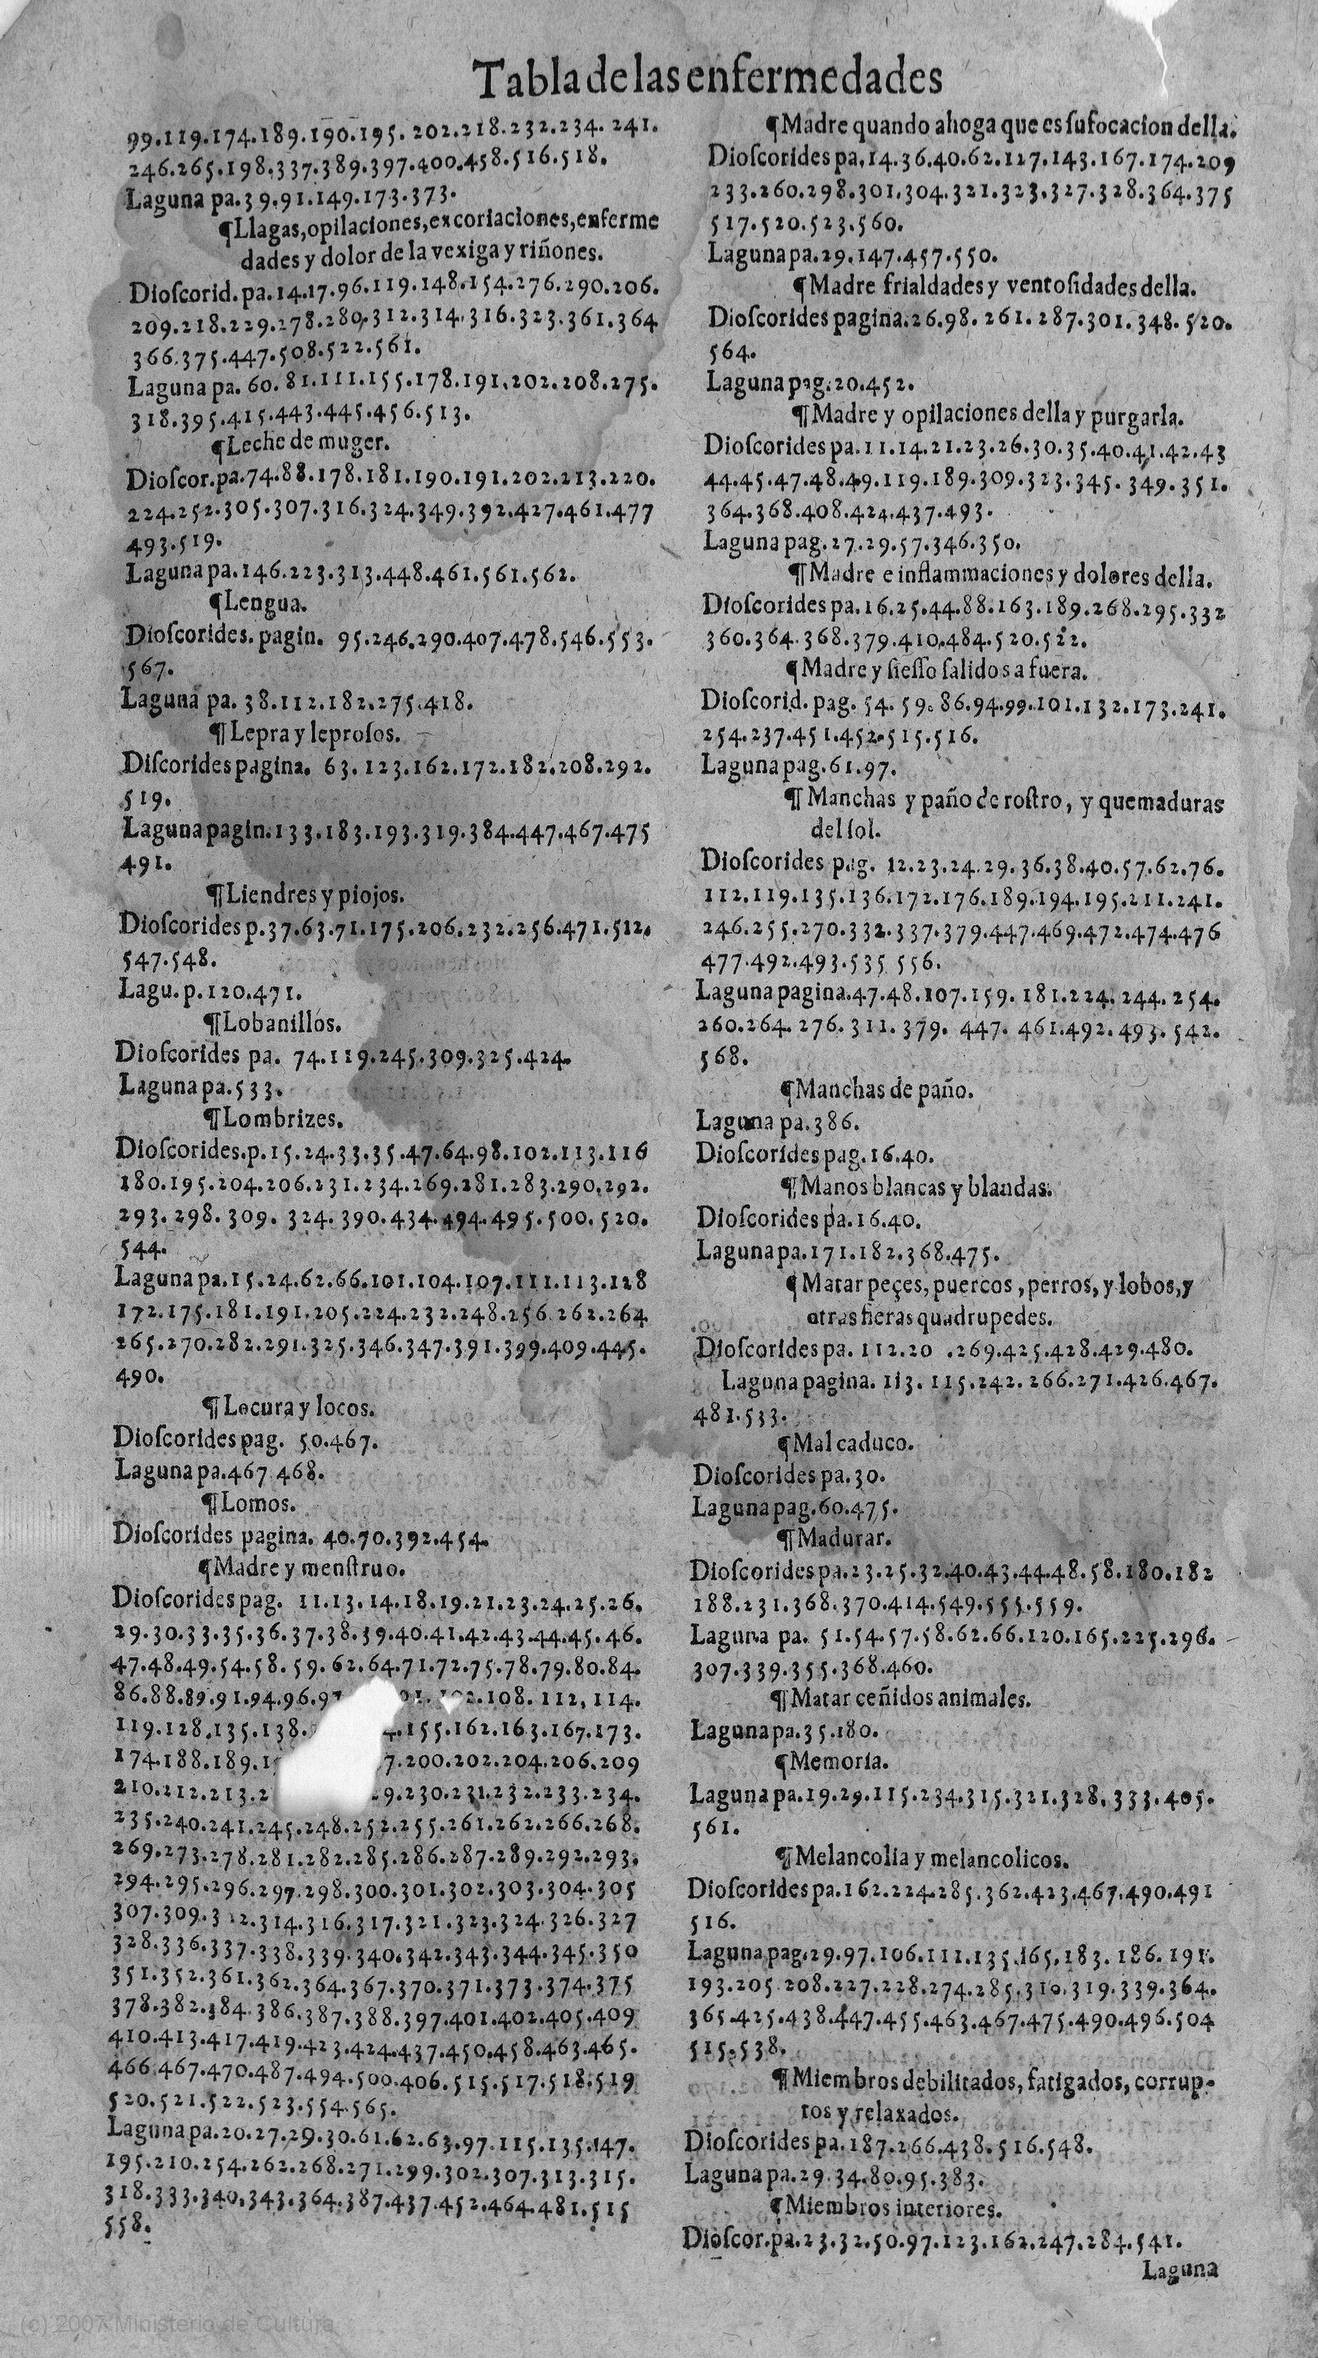 Tabla de las enfermedades
99.119.174.189.190.195. 202.218.232.234. 241.
246.265.198.337.389.397.400.458.516.518.
Laguna pa.39.91.149.173.373.
¶Llagas,opilaciones,excoriaciones,enferme
dades y dolor de la vexiga y riñones.
Dioſcorid.pa.14.17.96.119.148.154.276.290.206.
209.218.229.278.280.312.314.316.323.361.364
366.375.447.508.522.561.
Laguna pa. 60.81.111.155.178.191.202.208.275.
318.395.415.443.445.456.513.
¶Leche de muger.
Dioſcor.pa.74.88.178.181.190.191.202.213.220.
224.252.305.307.316.324.349.392.427.461.477
493.519.
Laguna pa.146.223.313.448.461.561.562.
¶Lengua.
Dioſcorides. pagin. 95.246.290.407.478.546.553.
567.
Laguna pa. 38.112.182.275.418.
¶Lepra y leproſos.
Diſcorides pagina. 63.123.162.172.182.208.292.
519.
Laguna pagin.133.183.193.319.384.447.467.475
491.
¶Liendres y piojos.
Dioſcorides p.37.63.71.175.206.232.256.471.512.
547.548.
Lagu.p.120.471.
¶Lobanillos.
Dioſcorides pa. 74.119.245.309.325.424.
Laguna pa.533.
¶Lombrizes.
Dioſcorides.p.15.24.33.35.47.64.98.102.113.116
180.195.204.206.231.234.269.281.283.290.292.
293. 298. 309. 324. 390.434.494.495.500. 520.
544.
Laguna pa.15.24.62.66.101.104.107.111.113.128
172.175.181.191.205.224.232.248.256.262.264
265.270.282.291.325.346.347.391.399.409.445.
490.
¶Locura y locos.
Dioſcorides pag. 50.467.
Laguna pa.467 468.
¶Lomos.
Dioſcorides pagina. 40.70.392.454.
¶Madre y menſtruo.
Dioſcorides pag. 11.13.14.18.19.21.23.24.25.26.
29.30.33.35.36.37.38.39.40.41.42.43.44.45.46.
47.48.49.54.58.59.62.64.71.72.75.78.79.80.84.
86.88.89.91.94.96.97 108. 112, 114.
119.128.135.138. 155.162.163.167.173.
174.188.189. 200.202.204.206.209
210.212.213. 230.231.232.233.234.
235.240.241.245.248.252.255.261.262.266.268.
269.273.278.281.282.285.286.287.289.292.293.
294.295.296.297.298.300.301.302.303.304.305
307.309.312.314.316.317.321.323.324.326.327
328.336.337.338.339.340.342.343.344.345.350
351.352.361.362.364.367.370.371.373.374.375
378.382.384.386.387.388.397.401.402.405.409
410.413.417.419.423.424.437.450.458.463.465.
466.467.470.487.494.500.406.515.517.518.519
520.521.522.523.554.565.
Laguna pa.20.27.29.30.61.62.63.97.115.135.147.
195.210.254.262.268.271.299.302.307.313.315.
318.333.340.343.364.387.437.452.464.481.515
558.
¶Madre quando ahoga que es ſufocacion della.
Dioſcorides pa.14.36.40.62.127.143.167.174.209
233.260.298.301.304.321.323.327.328.364.375
517.520.523.560.
Laguna pa.29.147.457.550.
¶Madre frialdades y ventoſidades della.
Dioſcorides pagina.26.98. 261. 287.301. 348. 520.
564.
Laguna pag.20.452.
¶Madre y opilaciones della y purgarla.
Dioſcorides pa.11.14.21.23.26.30.35.40.41.42.43
44.45.47.48.49.119.189.309.323.345. 349.351.
364.368.408.424.437.493.
Laguna pag.27.29.57.346.350.
¶Madre e inflammaciones y dolores della.
Dioſcorides pa.16.25.44.88.163.189.268.295.332
360.364.368.379.410.484.520.522.
¶Madre y ſieſſo ſalidos a fuera.
Dioſcorid. pag. 54. 59. 86.94.99.101.132.173.241.
254.237.451.452.515.516.
Laguna pag.61.97.
¶Manchas y paño de roſtro, y quemaduras
del ſol.
Dioſcorides pag. 12.23.24.29.36.38.40.57.62.76.
112.119.135.136.172.176.189.194.195.211.241.
246.255.270.332.337.379.447.469.472.474.476
477.492.493.535 556.
Laguna pagina.47.48.107.159. 181.224. 244. 254.
260.264. 276. 311. 379. 447. 461.492. 493. 542.
568.
¶Manchas de paño.
Laguna pa.386.
Dioſcorides pag.16.40.
¶Manos blancas y blandas.
Dioſcorides pa.16.40.
Laguna pa.171.182.368.475.
¶Matar peçes, puercos, perros, y lobos, y
otras fieras quadrupedes.
Dioſcorides pa. 112.20 .269.425.428.429.480.
Laguna pagina. 113. 115.242. 266.271.426.467.
481.533.
¶Mal caduco.
Dioſcorides pa.30.
Laguna pag.60.475.
¶Madurar.
Dioſcorides pa.23.25.32.40.43.44.48.58.180.182
188.231.368.370.414.549.555.559.
Laguna pa. 51.54.57.58.62.66.120.165.225.296.
307.339.355.368.460.
¶Matar ceñidos animales.
Laguna pa.35.180.
¶Memoria.
Laguna pa.19.29.115.234.315.321.328.333.405.
561.
¶Melancolia y melancolicos.
Dioſcorides pa.162.224.285.362.423.467.490.491
516.
Laguna pag.29.97.106.111.135.165.183. 186. 191.
193.205.208.227.228.274.285.310.319.339.364.
365.425.438.447.455.463.467.475.490.496.504
515.538.
¶Miembros debilitados, fatigados, corrup-
tos y relaxados.
Dioſcorides pa.187.266.438.516.548.
Laguna pa.29.34.80.95.383.
¶Miembros interiores.
Dioſcor.pa.23.32.50.97.123.162.247.284.541.
Laguna
(c) 2007 Ministerio de Cultura